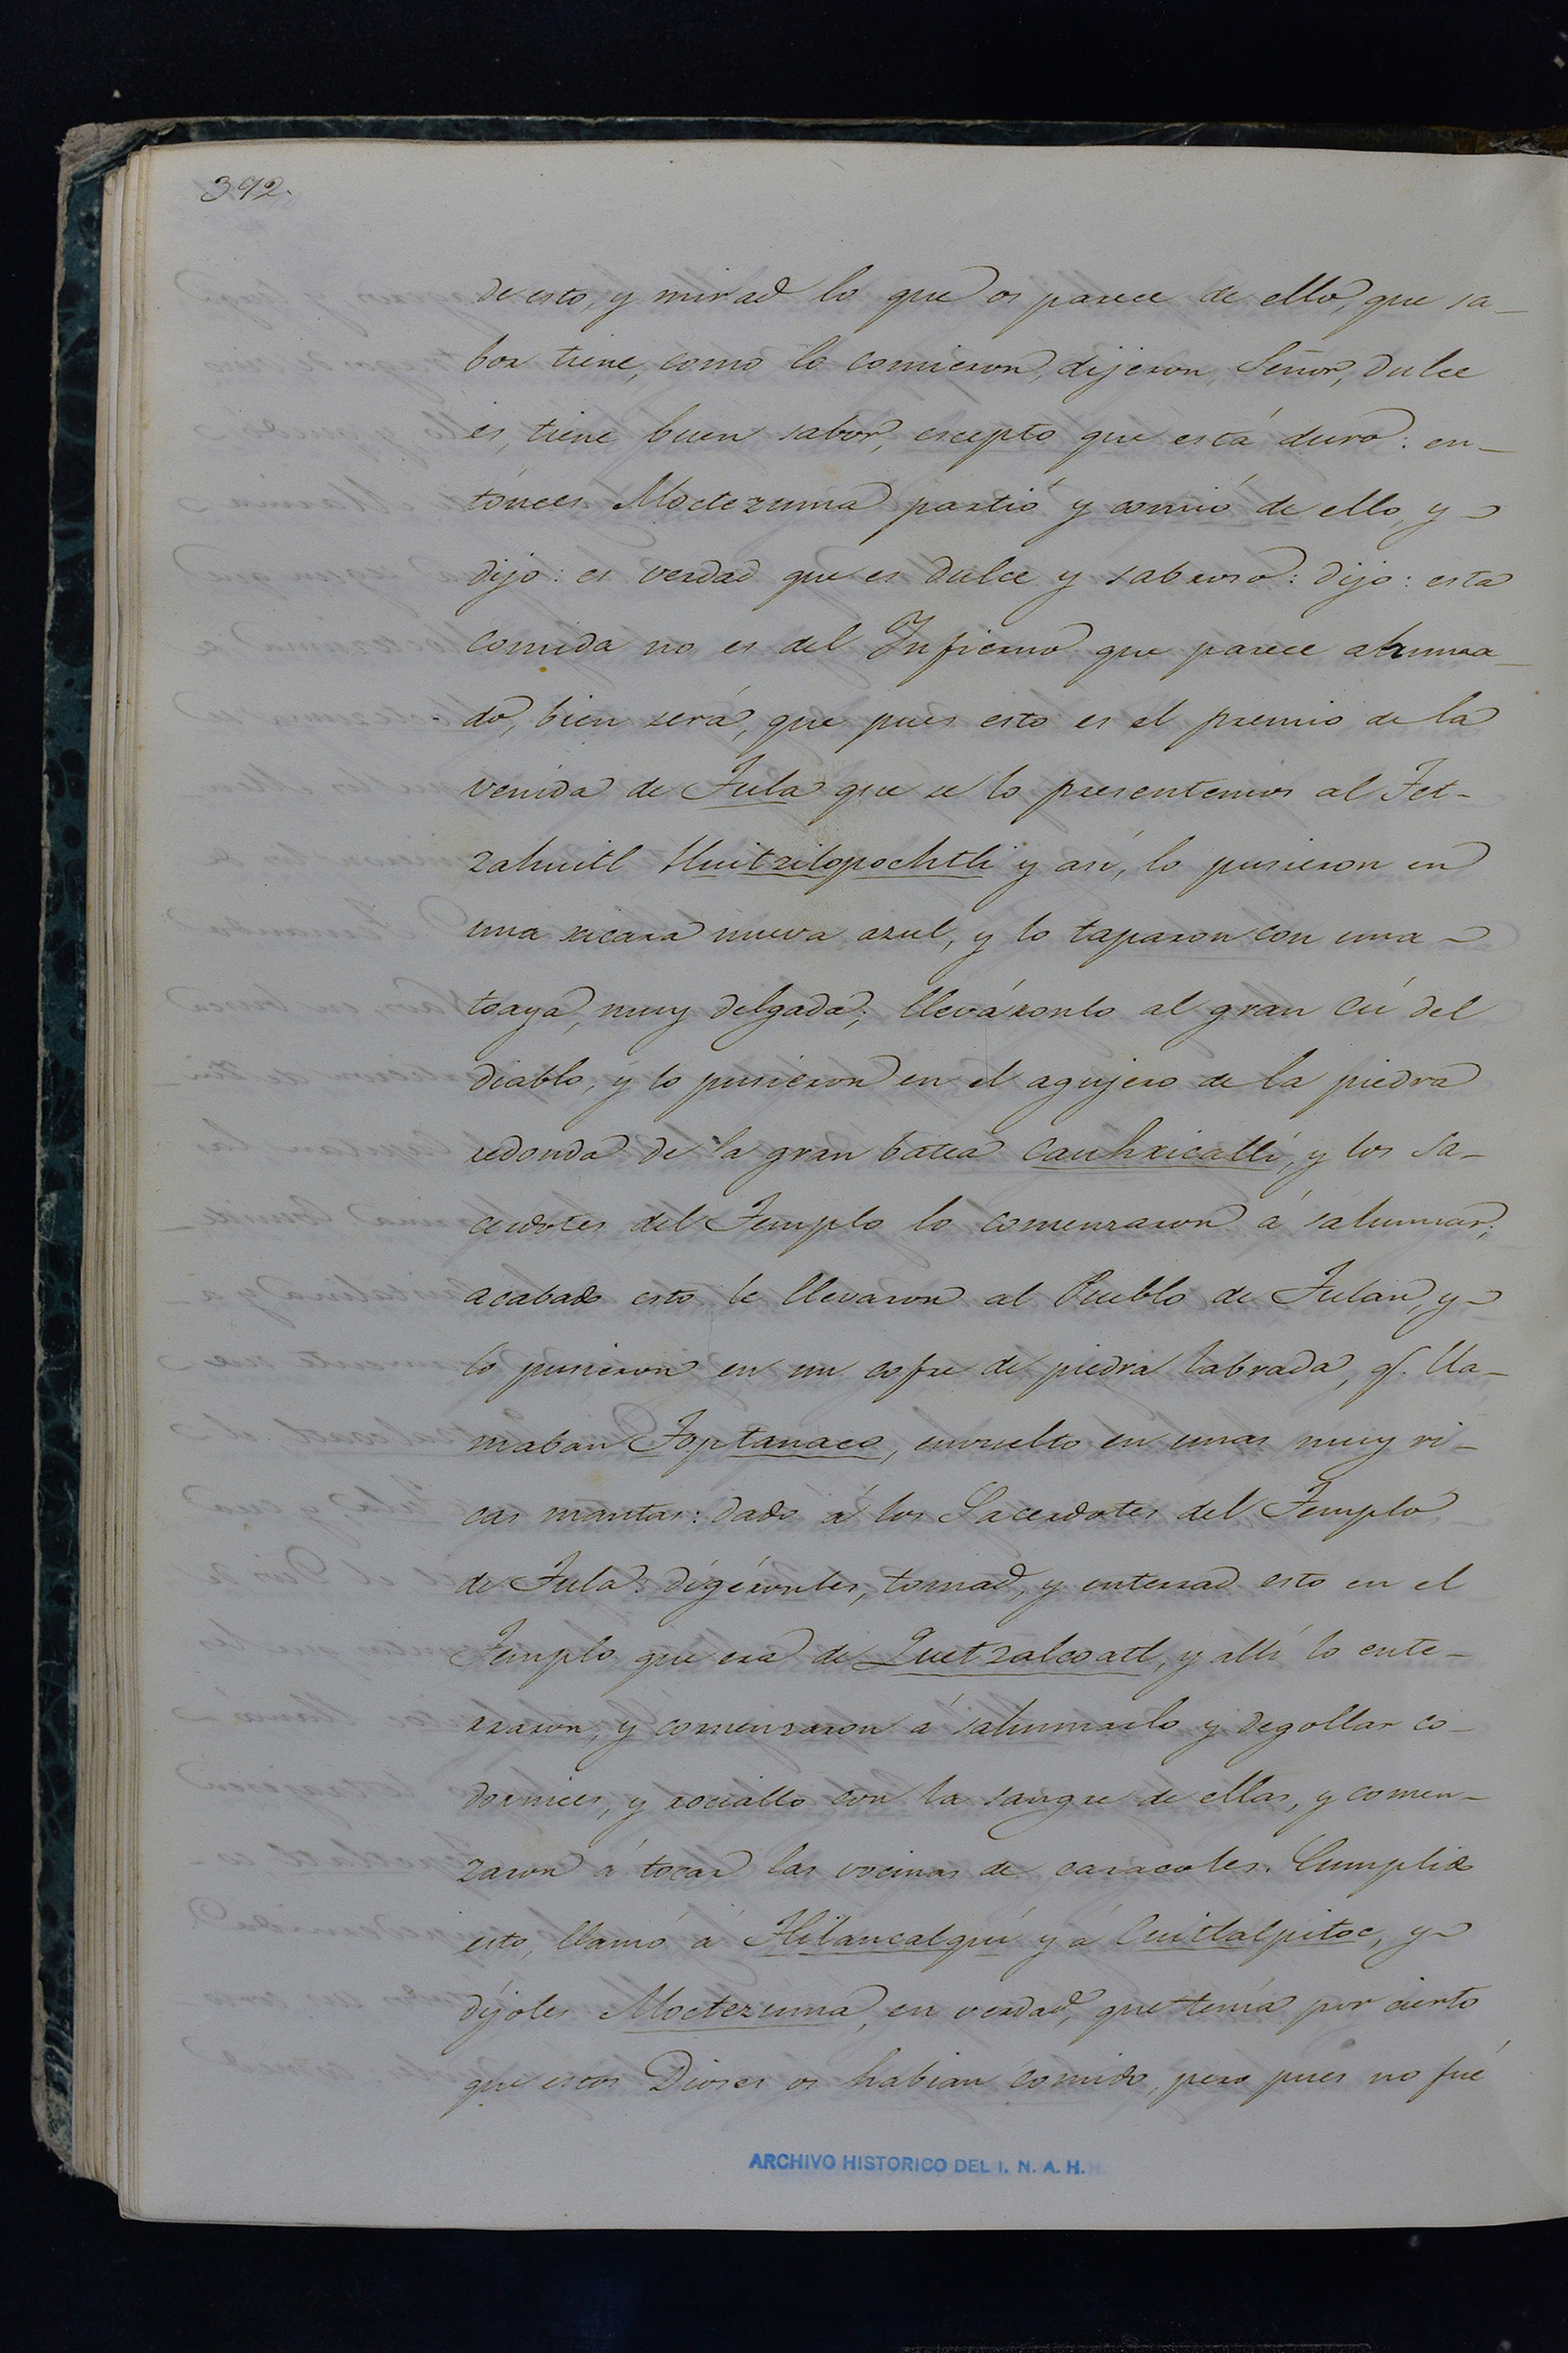 392.
de esto, y mirad lo que os parece de ello, que sa-
bor tiene, como lo comieron, dijeron, Señor, dulce
es, tiene buen sabor, escepto que está duro: en-
tónces Moctezuma partió y comió de ello, y
dijo: es verdad que es dulce y sabroso: dijo: esta
comida no es del Infierno que parece ahuma-
do, bien será, que pues esto es el premio de la
venida de Tula que se lo presentemos al Tet-
zahuitl Huitzilopochtli y así, lo pusieron en
una xicara nueva azul, y lo taparon con una
toaya, muy delgada; lleváronlo al gran cú del
diablo, y lo pusieron en el agujero de la piedra
redonda de la gran batea cauhxicalli, y los Sa-
cerdotes del Templo lo comenzaron á sahumar;
acabado esto le llevaron al Pueblo de Tulan, y
lo pusieron en un cofre de piedra labrada, q. lla-
maban Toptanaco, envuelto en unas muy ri-
cas mantas: dado á los Sacerdotes del Templo
de Tula: digéronles, tomad, y enterrad esto en el
Templo que era de Quetzalcoatl, y allí lo ente-
rraron, y comenzaron á sahumarlo y degollar co-
dornices, y rociallo con la sangre de ellas, y comen-
zaron á tocar las vocinas de caracoles. Cumplido
esto, llamó á Tlilancalquí y á Cuitlalpitoc, y
díjoles Moctezuma, en verdad, que tenía por cierto
que estos Dioses os habian comido, pero pues no fué
ARCHIVO HISTORICO DEL I. N. A. H.